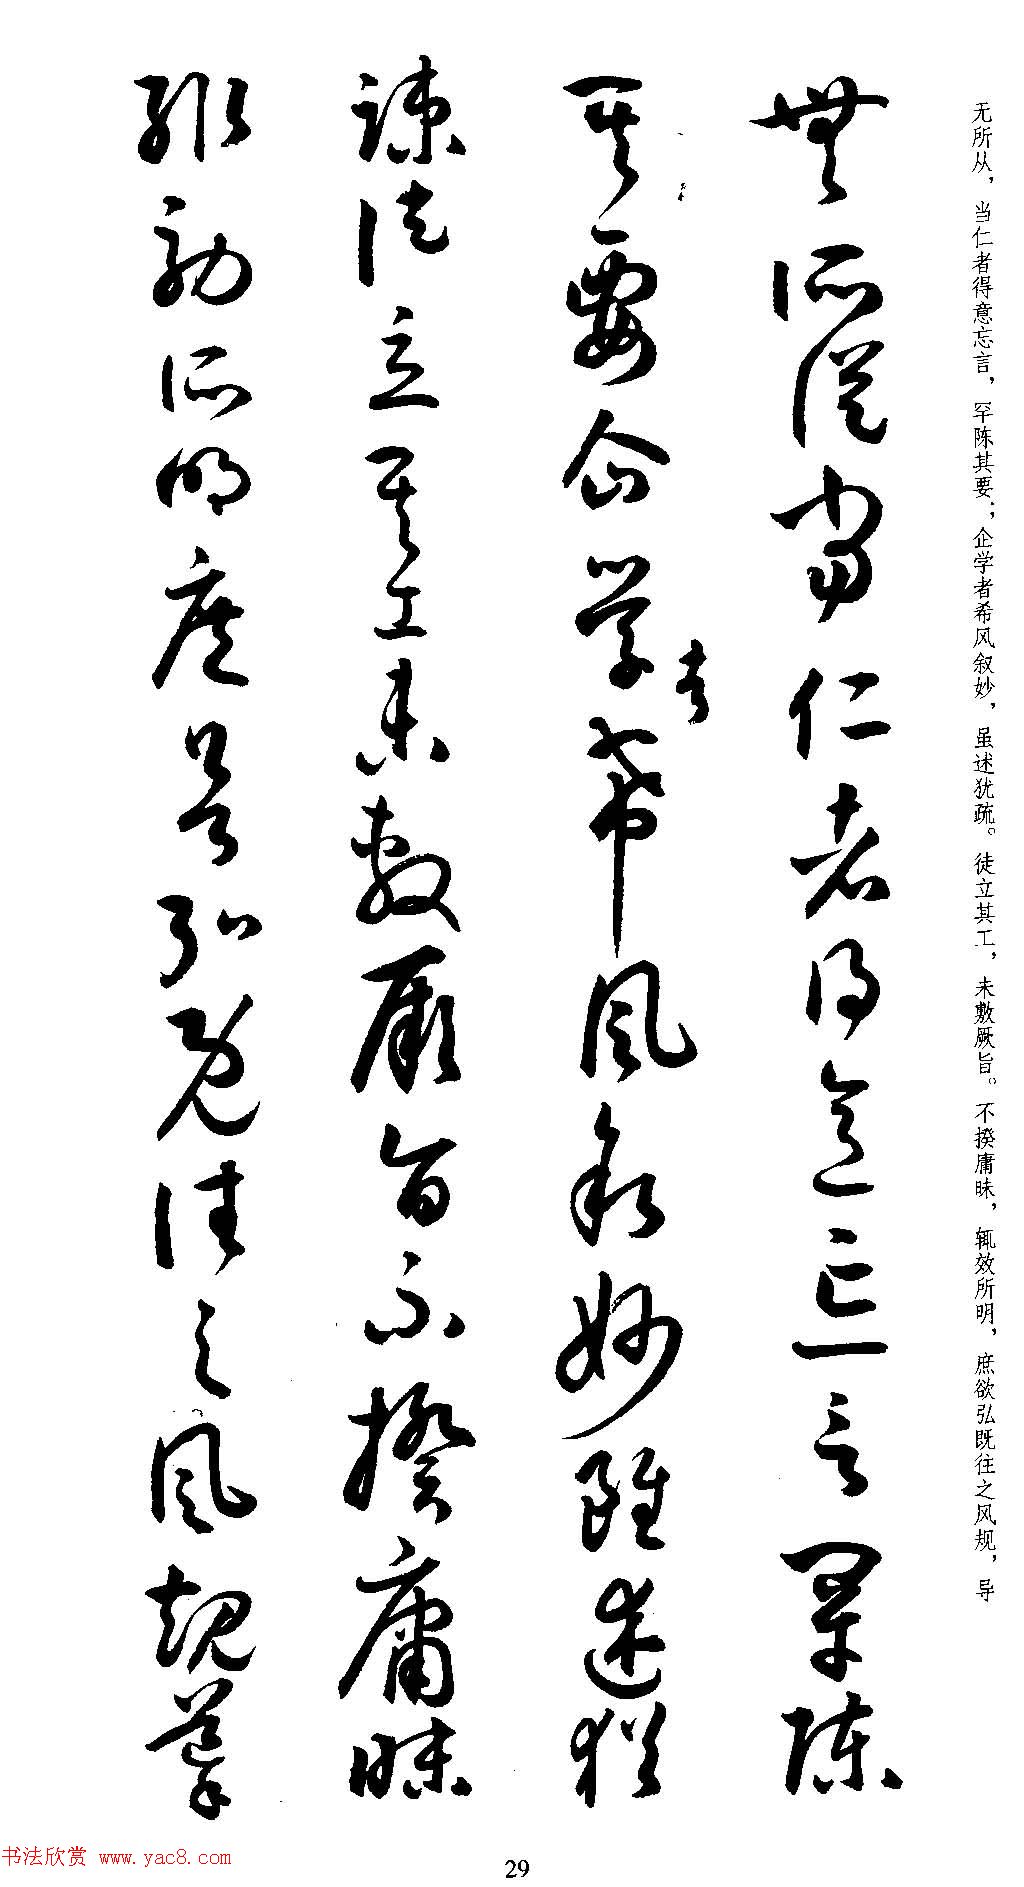 无所从，当仁者得意忘言，罕陈其要；企学者希风叙妙，虽述犹疏。徒立其工，未敷厥旨。不揆庸昧，辄效所明，庶欲弘既往之风规，导
無所從當仁者得意忘言罕陳
其要企學者希風敘妙雖述猶
疎徒立其工未敷厥旨不揆庸昧
輒効所明庶欲弘既往之風規導
书法欣赏 www.yac8.com
29